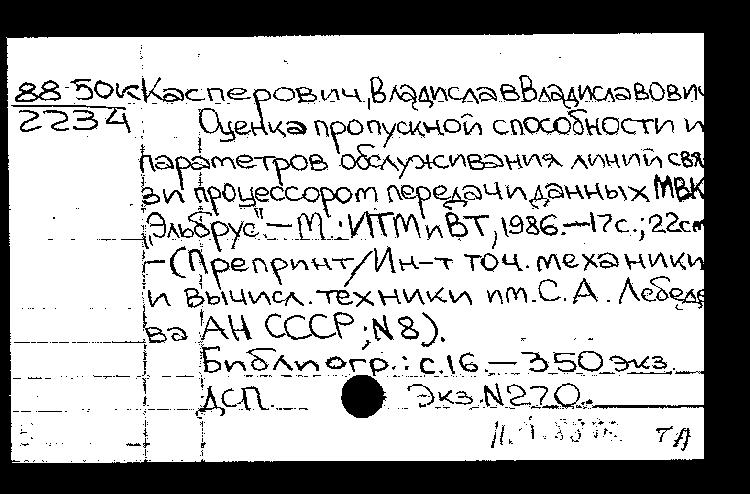 88-50к Касперович, Владислав Владиславович
2234 Оценка пропускной способности и
параметров обслуживания линий свя-
зи процессором передачи данных МВК
"Эльбрус".—М.: ИТМиВТ, 1986.—17с.; 22см
—(Препринт/Ин-т точ. механики
и вычисл. техники им. С. А. Лебеде-
ва АН СССР; N8).
Библиогр.: с.16.—350 экз.
ДСП. Экз. N270.
ТД